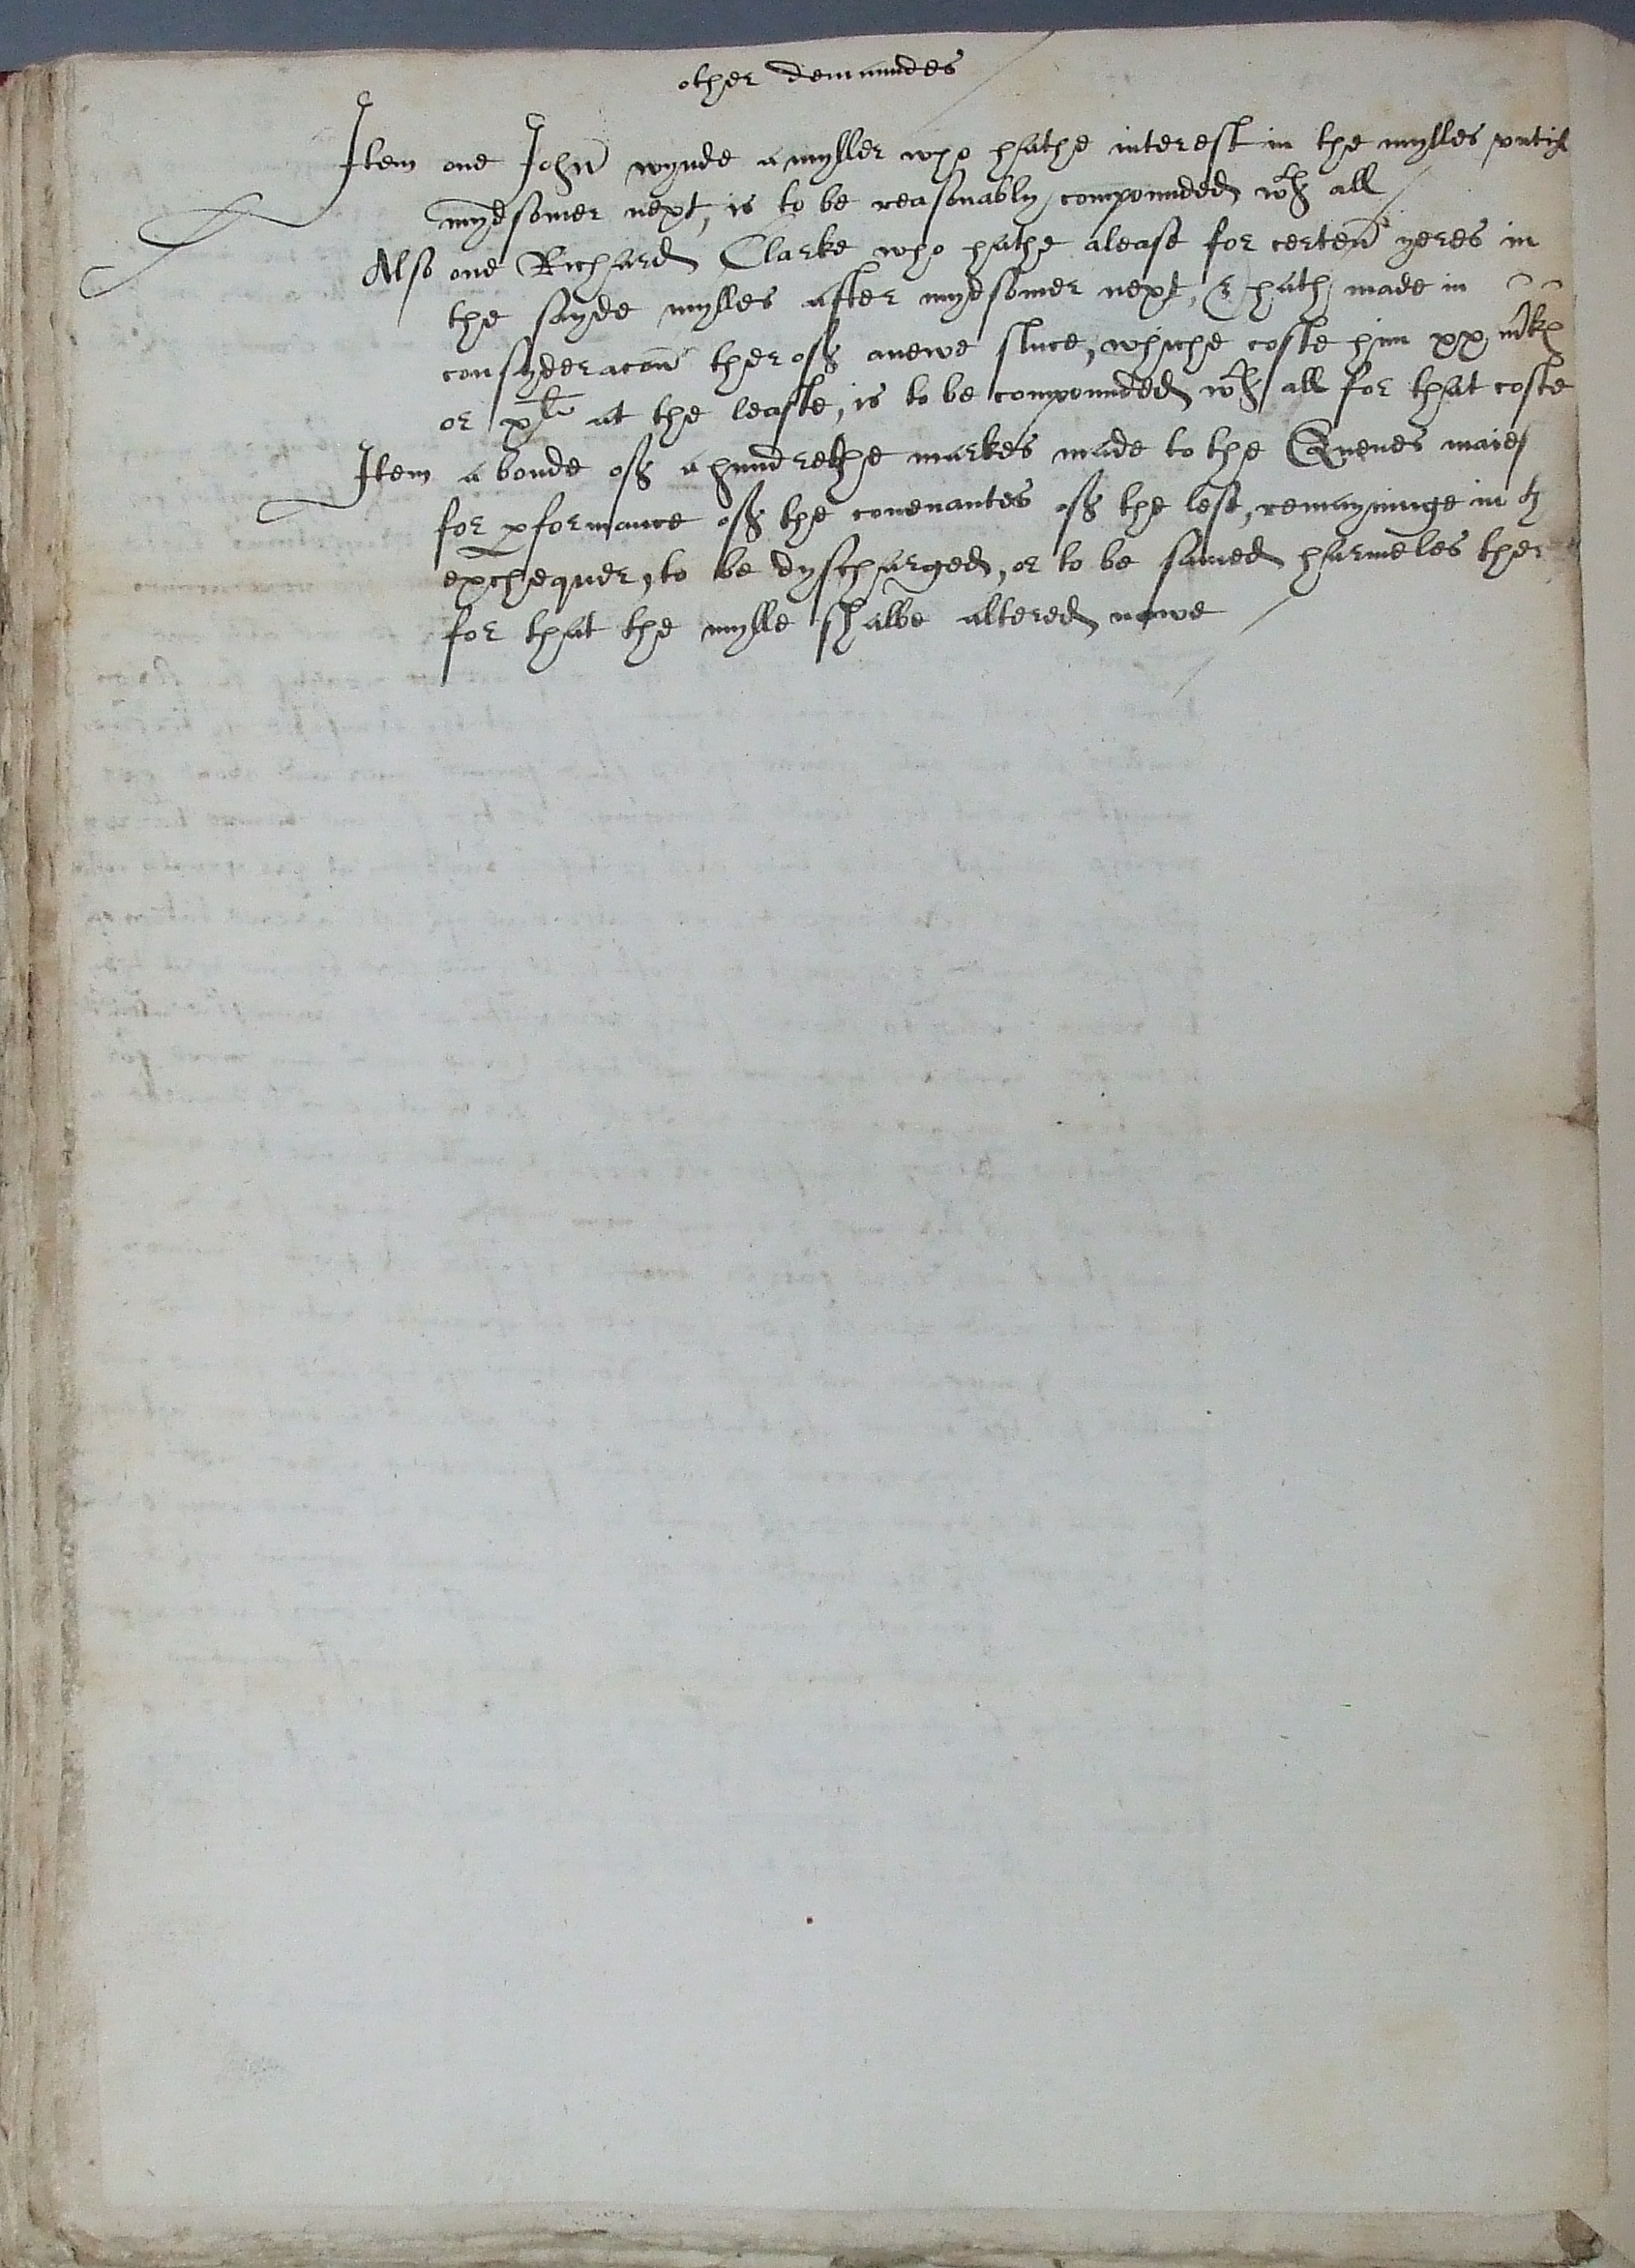 other demaundes
Item one John wynde a myller who hathe interest in the mylles vntill
mydsomer next, is to be reasonably compounded wth all
Also one Richard Clarke who hathe a lease for certen yeres in
the sayde mylles after mydsomer next, & hath made in
consyderacon therof a newe sluce, whiche coste him xx mks
or xl at the leaste, is to be compounded wth all for that coste
Item a bonde of a hundrethe markes made to the Quenes maies
for pformance of the couenantes of the lese, remayninge in
exchequer, to be dyscharged, or to be saued harmeles ther
for that the mylle shalbe altered nowe